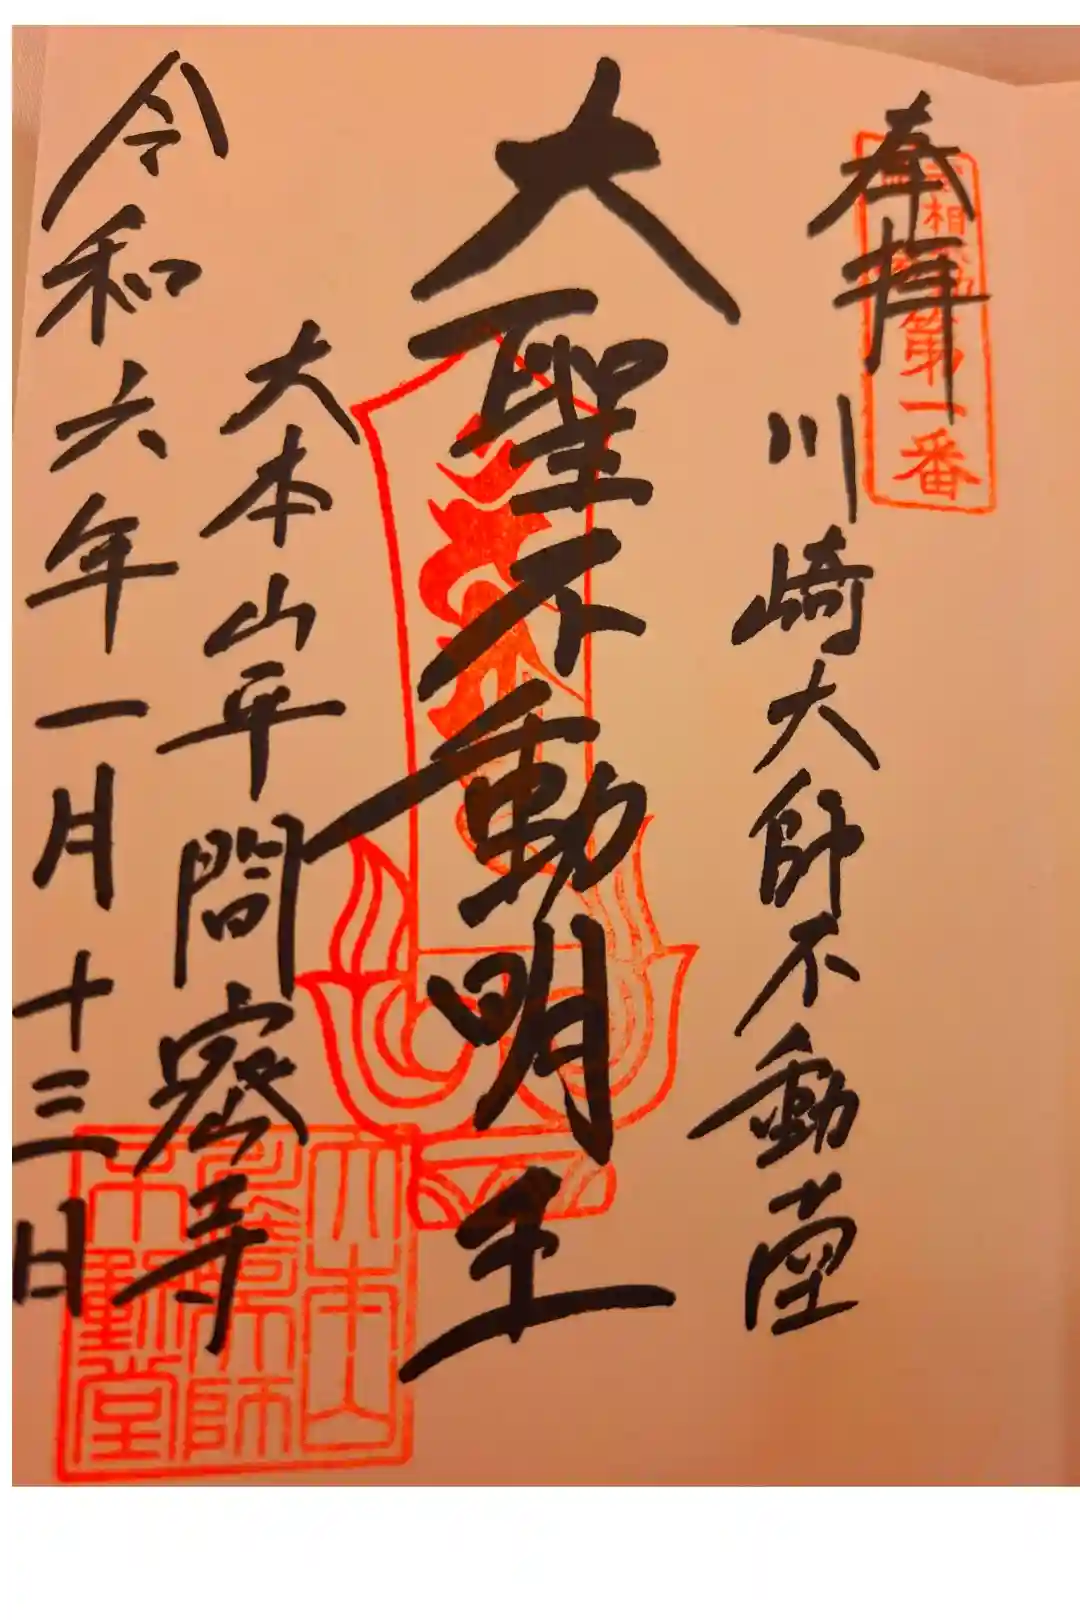 奉拝
川崎大師不動堂
大聖不動明王
大本山平間密寺
令和六年一月十三日
第一番
大本山
大師
不動堂